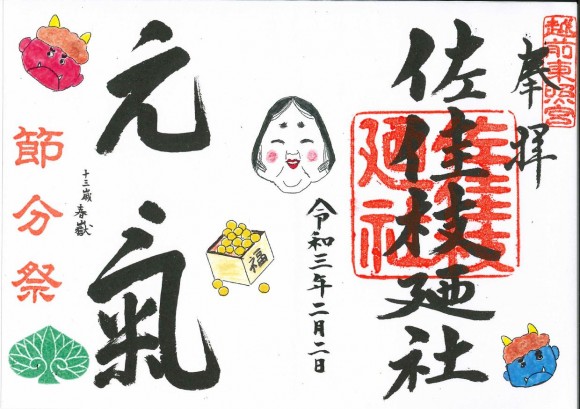 奉拝
越前東照宮
佐佳枝廼社
佐佳枝廼社
令和三年二月二日
福
元氣
十三歳 春嶽
節分祭